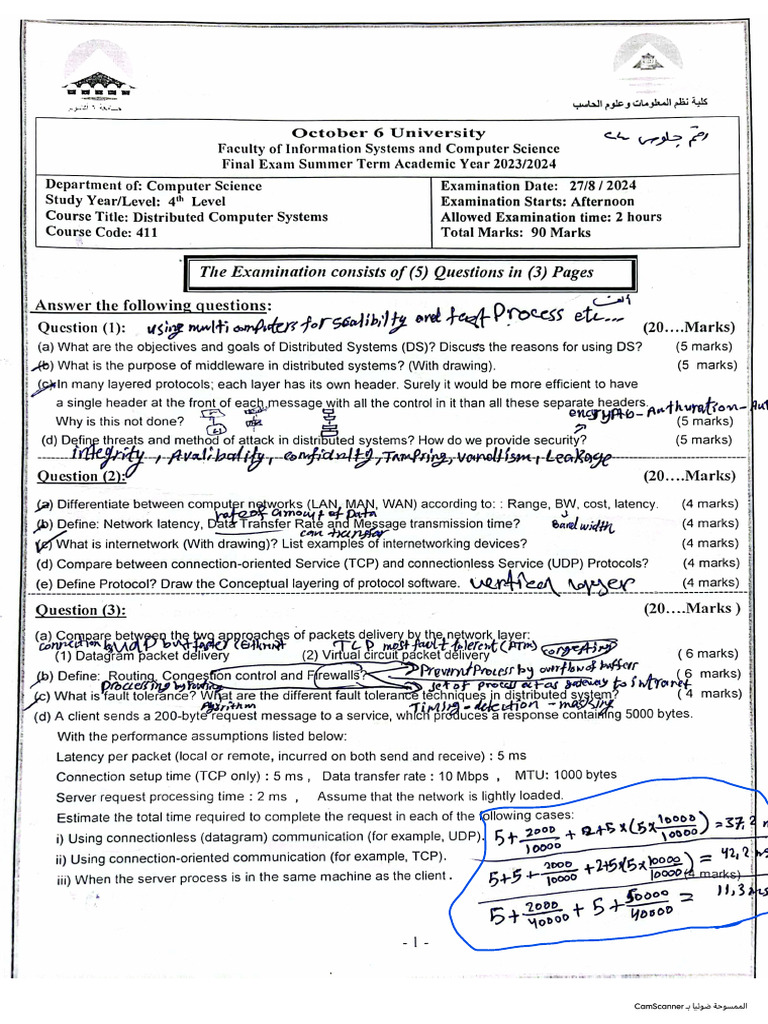 جامعة ٦ أكتوبر
كلية نظم المعلومات وعلوم الحاسب
October 6 University
Faculty of Information Systems and Computer Science
Final Exam Summer Term Academic Year 2023/2024
رقم جلوس
Department of: Computer Science
Study Year/Level: 4th Level
Course Title: Distributed Computer Systems
Course Code: 411
Examination Date: 27/8 / 2024
Examination Starts: Afternoon
Allowed Examination time: 2 hours
Total Marks: 90 Marks
The Examination consists of (5) Questions in (3) Pages
Answer the following questions:
Question (1): using multi computers for scalibilty and fast Process etc... (20....Marks)
(a) What are the objectives and goals of Distributed Systems (DS)? Discuss the reasons for using DS? (5 marks)
(b) What is the purpose of middleware in distributed systems? (With drawing). (5 marks)
(c) In many layered protocols; each layer has its own header. Surely it would be more efficient to have
a single header at the front of each message with all the control in it than all these separate headers.
Why is this not done? (5 marks)
(d) Define threats and method of attack in distributed systems? How do we provide security? (5 marks)
integrity, Avalibality, confidnlty, Tampring, Vandlism, Leakage
Question (2): (20....Marks)
(a) Differentiate between computer networks (LAN, MAN, WAN) according to: : Range, BW, cost, latency. (4 marks)
rate of amount of Data
(b) Define: Network latency, Data Transfer Rate and Message transmission time? Band width (4 marks)
can transfer
(c) What is internetwork (With drawing)? List examples of internetworking devices? (4 marks)
(d) Compare between connection-oriented Service (TCP) and connectionless Service (UDP) Protocols? (4 marks)
(e) Define Protocol? Draw the Conceptual layering of protocol software. vertical layer (4 marks)
Question (3): (20....Marks )
(a) Compare between the two approaches of packets delivery by the network layer:
UDP but faster TCP most fault tolerent (ATM)
(1) Datagram packet delivery (2) Virtual circuit packet delivery (6 marks)
Prevent Process by overflow of buffers
(b) Define: Routing, Congestion control and Firewalls? ( 6 marks)
Processing by routing set of process act as gateway to intranet
(c) What is fault tolerance? What are the different fault tolerance techniques in distributed system? ( 4 marks)
Algorithm Timing - detection - masking
(d) A client sends a 200-byte request message to a service, which produces a response containing 5000 bytes.
With the performance assumptions listed below:
Latency per packet (local or remote, incurred on both send and receive) : 5 ms
Connection setup time (TCP only) : 5 ms , Data transfer rate : 10 Mbps , MTU: 1000 bytes
Server request processing time : 2 ms , Assume that the network is lightly loaded.
Estimate the total time required to complete the request in each of the following cases:
i) Using connectionless (datagram) communication (for example, UDP). 5+2000/10000 + 2+5×(5×10000/10000) = 37,2 m
ii) Using connection-oriented communication (for example, TCP). 5+5+2000/10000 +2+5×(5×10000/10000) = 42,2 ms
iii) When the server process is in the same machine as the client . (4 marks)
5+2000/40000 + 5 + 50000/40000 = 11,3 ms
- 1 -
الممسوحة ضوئيا بـ CamScanner